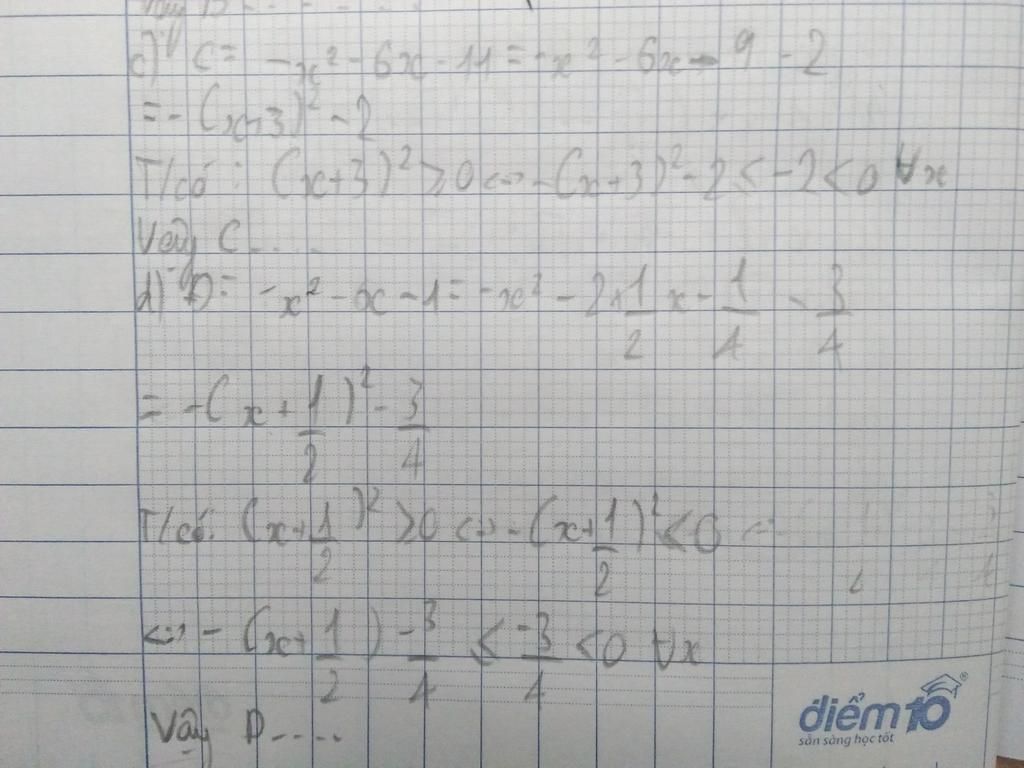 c) C = -x² - 6x - 11 = -x² - 6x - 9 - 2
= -(x+3)² - 2
T/có: (x+3)² ≥ 0 <=> -(x+3)² - 2 ≤ -2 < 0 ∀x
Vậy C.....
d) D = -x² - x - 1 = -x² - 2.1/2 x - 1/4 - 3/4
= -(x + 1/2)² - 3/4
T/có: (x+1/2)² ≥ 0 <=> -(x+1/2)² ≤ 0
<=> -(x+1/2) - 3/4 ≤ -3/4 < 0 ∀x
Vậy D.....
điểm10
sẵn sàng học tốt